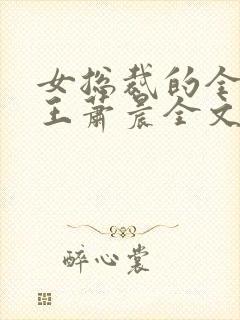 女总裁的全
王萧晨全文
醉心裳